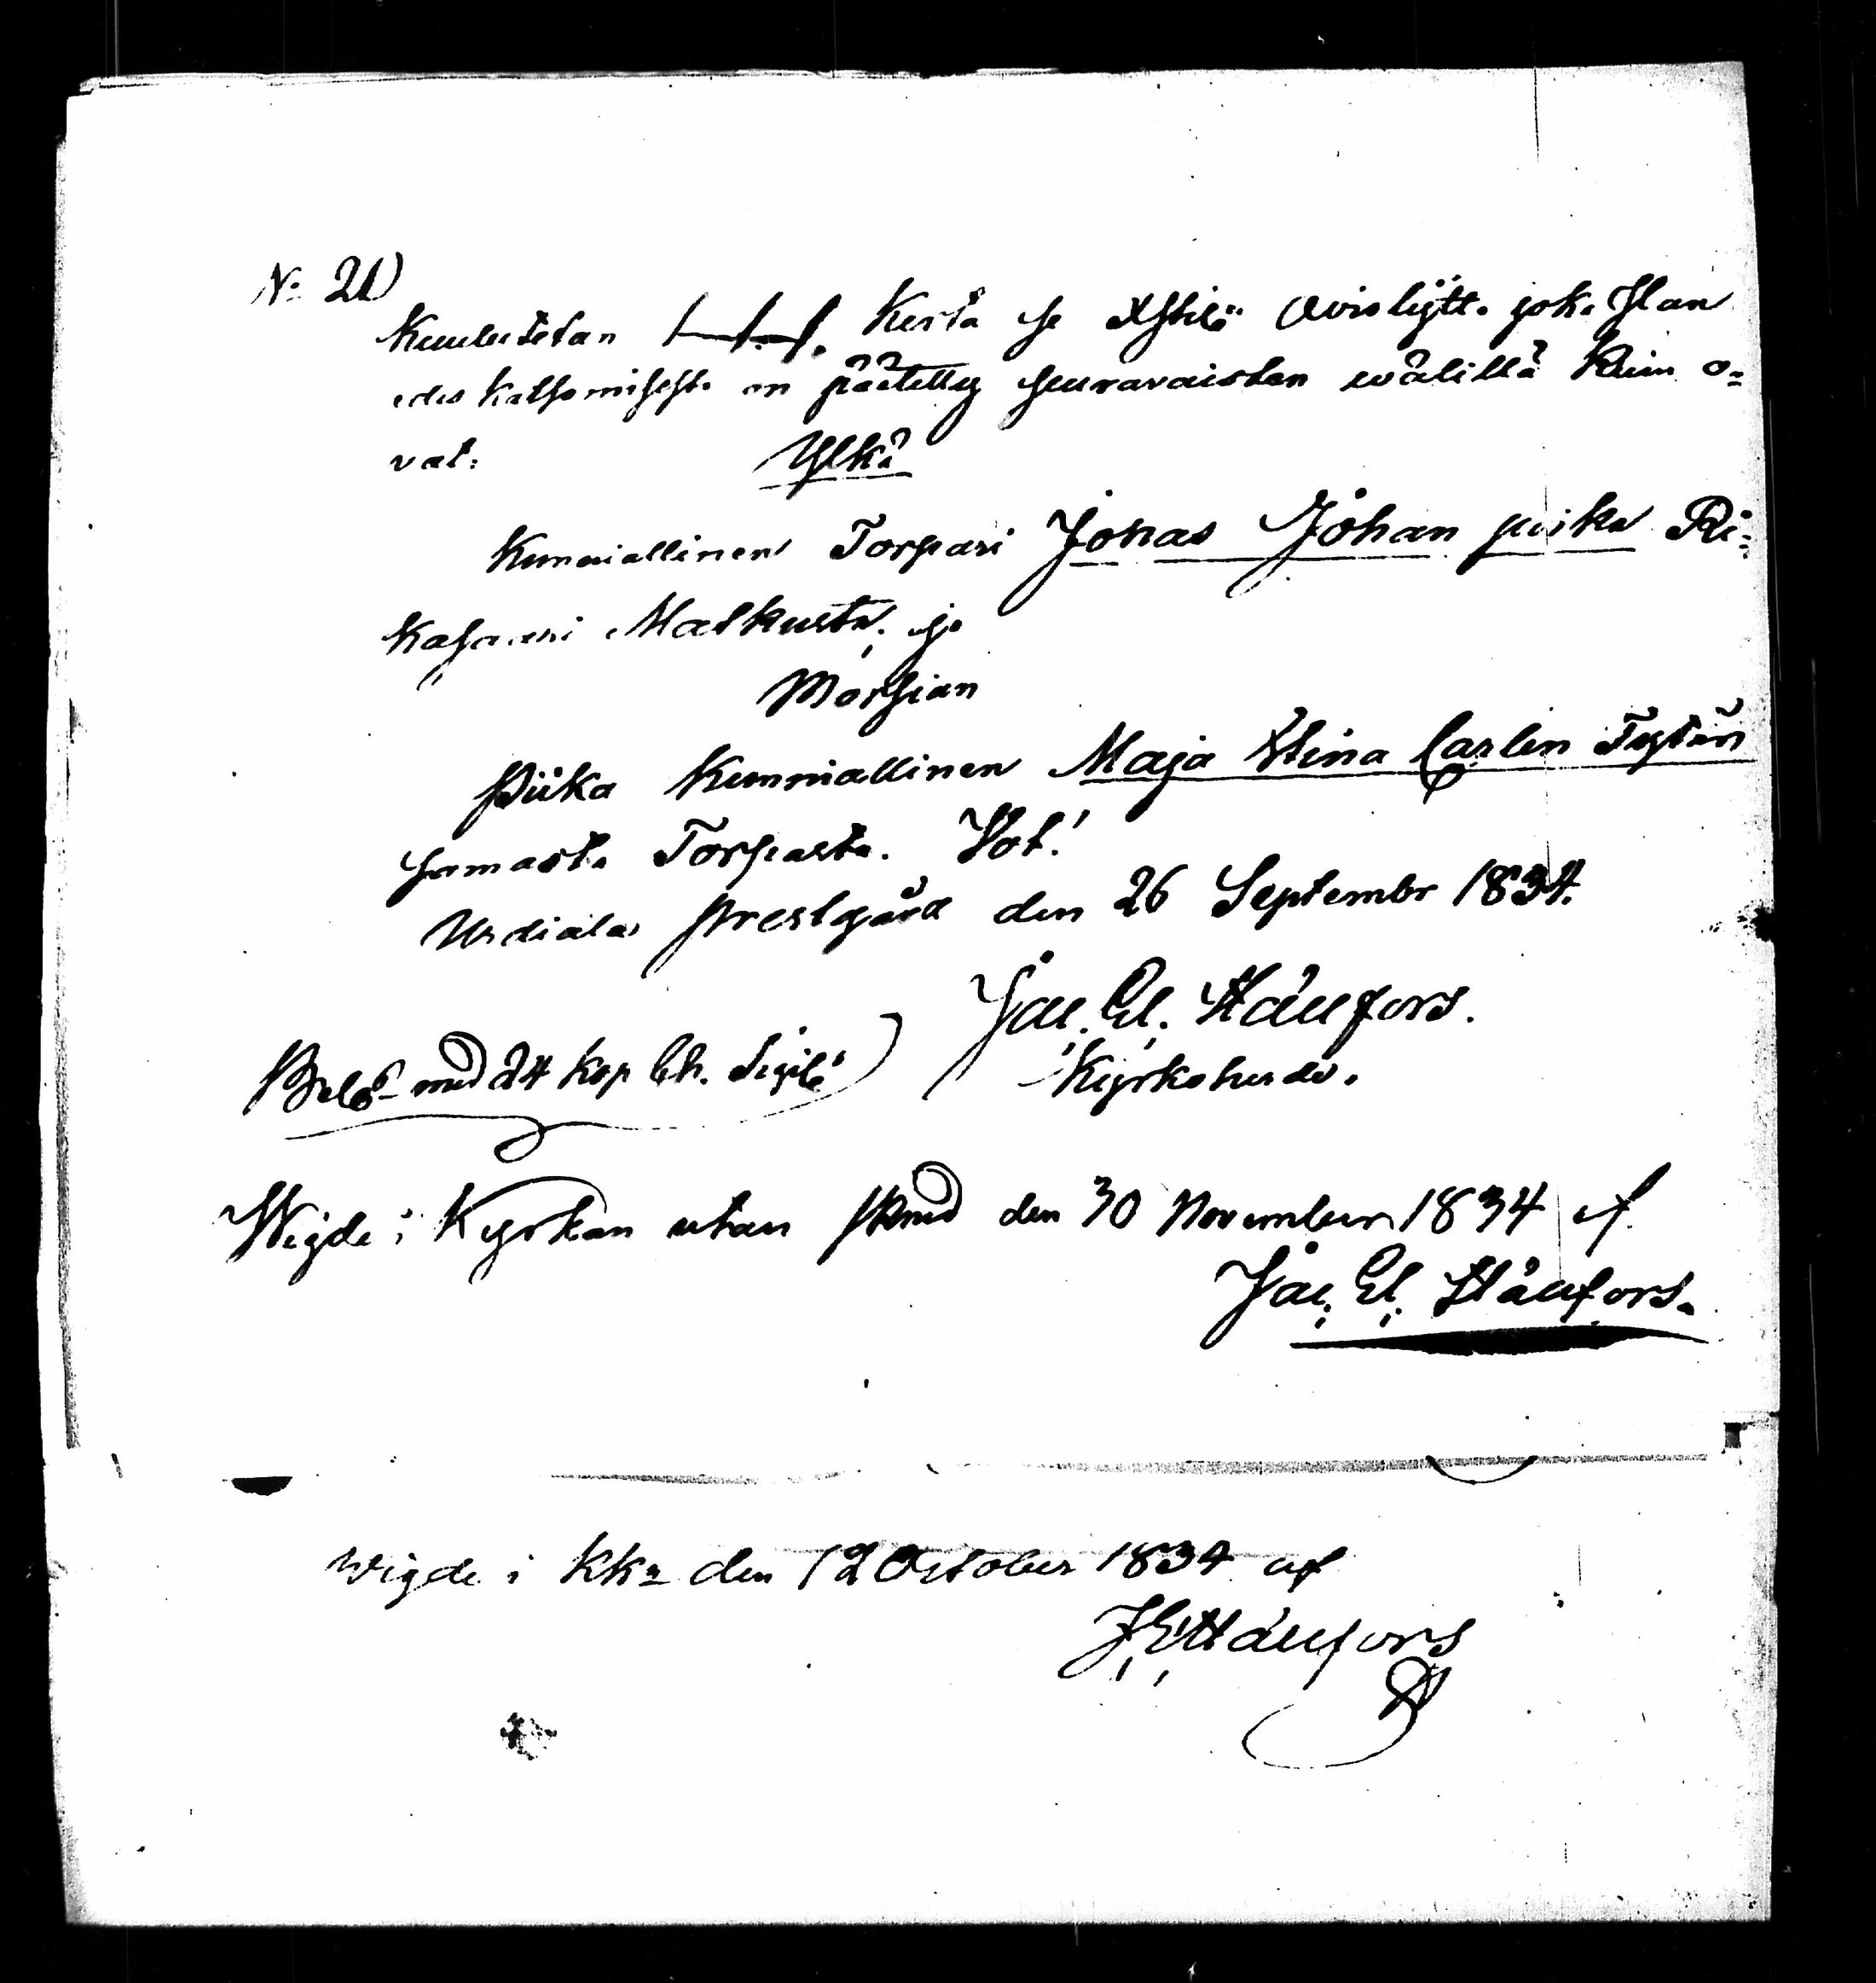 No 21)
Kuulutetan 1. 2. 3. Kerta se Xstil: Avioliytto joka Ilan
edes katsomisesta on päätetty seuravaisten wälillä kuin o=
vat:
Ylkä
Kunniallinen Torpari Johas Johan poika Ri=
Matkusta, ja
Morsian
Piika Kunniallinen Maja Stina Carlen Tytär
samasta Torpasta. Vot!
Urdiala Prestgård den 26 Septembr 1834.
Jac. El. Ståufors.
Kyrkoherde.
med 24 kop Ch. Sigil:)
Wigde i Kyrkan utan den 30 November 1834 af
Jac. El. Ståufors.
Wigde i Kka den 12 October 1834 af
J E Ståufors